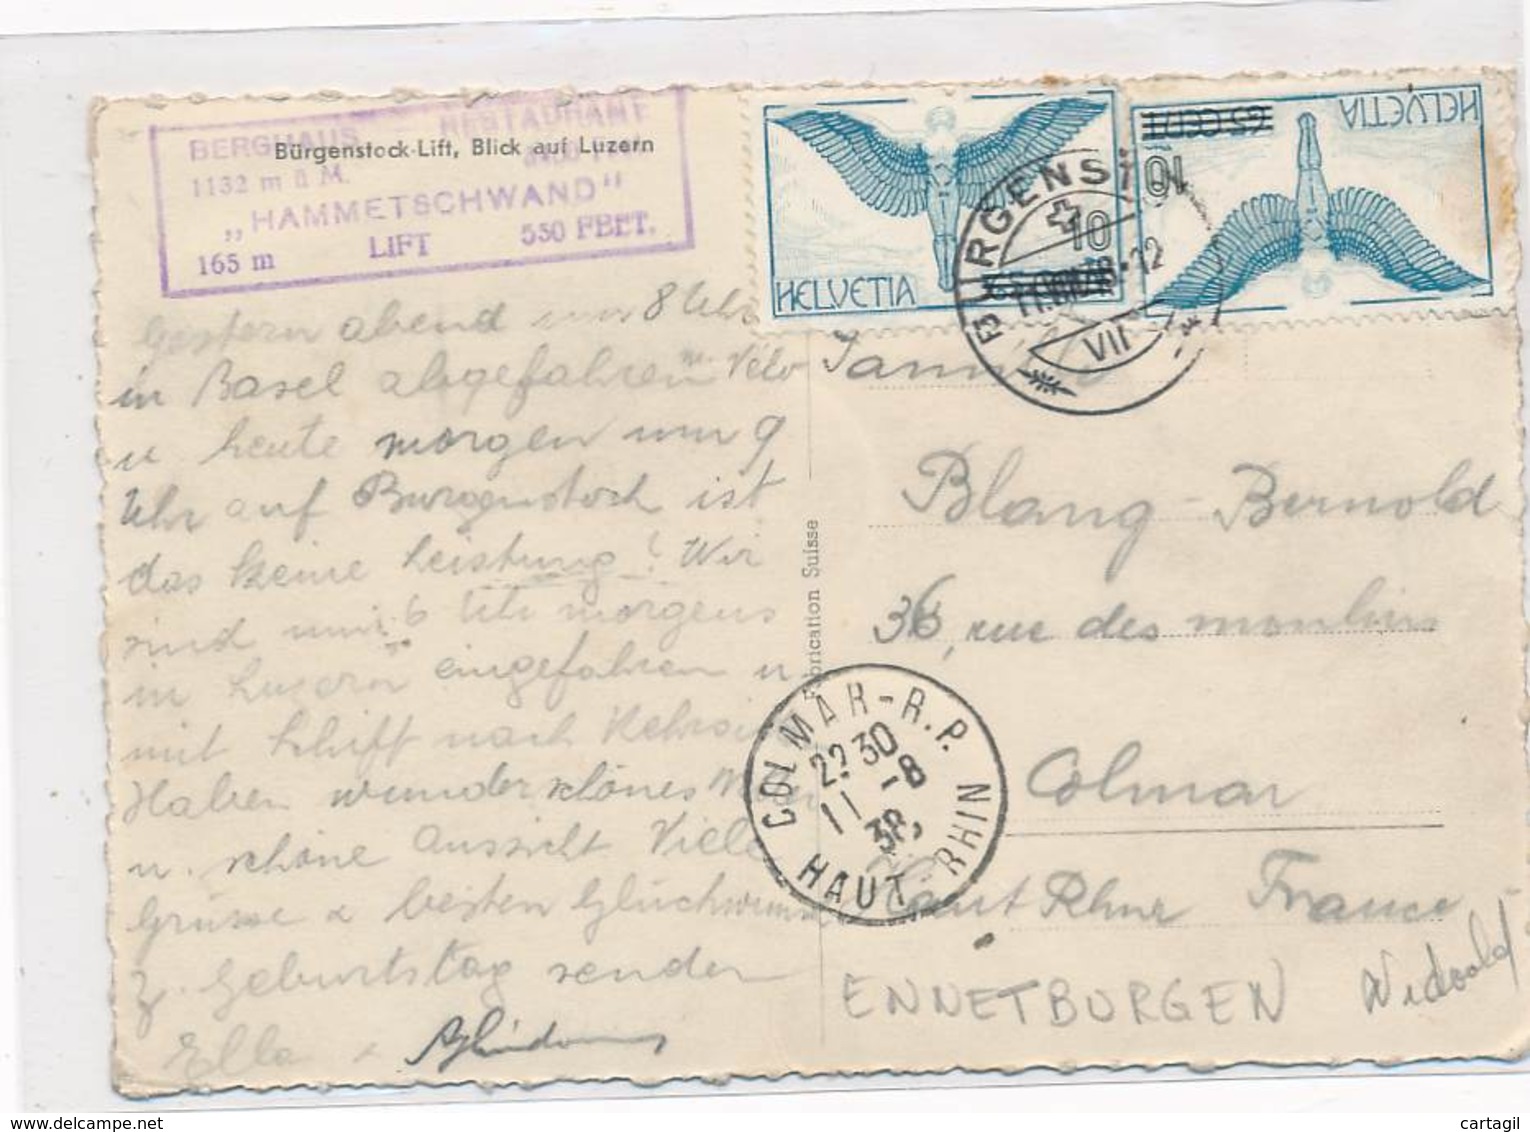 BERGHAUS - RESTAURANT
1132 m ü M.
„HAMMETSCHWAND"
165 m LIFT 550 FEET.
Bürgenstock-Lift, Blick auf Luzern
Gestern abend um 8 Uhr
in Basel abgefahren m. Velo
u heute morgen um 9
Uhr auf Burgenstock ist
das keine Leistung! Wir
sind um 6 Uhr morgens
in Luzern eingefahren u
mit Schiff nach
Haben wunderschönes
u. schöne Aussicht Viele
Grüsse & besten Glückwunsch
z. Geburtstag senden
Ella &
Fabrication Suisse
HELVETIA
10
HELVETIA
10
BÜRGENSTOCK
VII
Blang-Bernold
36, rue des moulins
Colmar
Haut Rhin France
COLMAR-R.P.
22 30
11 -8
38
HAUT RHIN
ENNETBURGEN